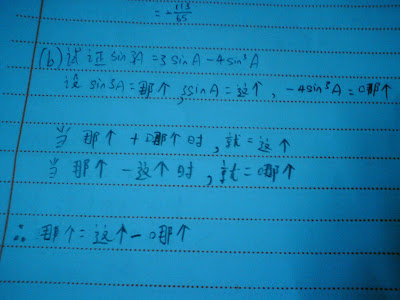 = -113/65
(b) 试证 sin3A = 3sinA - 4sin³A
设 sin3A = 那个, 3sinA = 这个, -4sin³A = 0那个
当 那个 + 0那个时, 就 = 这个
当 那个 - 这个时, 就 = 0哪个
∴ 那个 = 这个 - 0那个